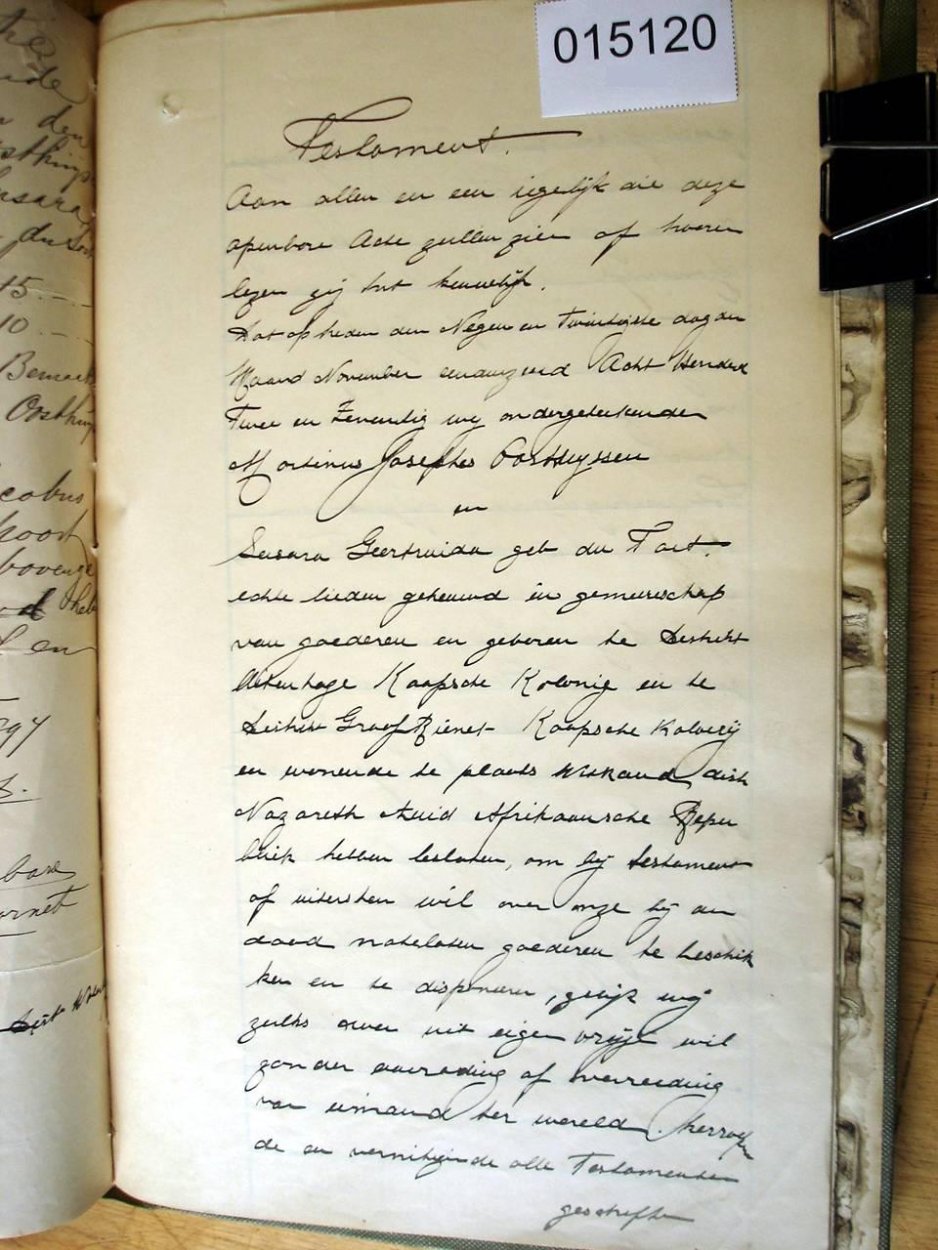 015120
Testament.
Aan allen en een iegelijk die deze
openbare Acte zullen zien of hooren
lezen zij het kennelijk.
Dat op heden den Negen en Twintigste dag der
Maand November eenduizend Acht Honderd
Twee en Zeventig wij ondergeteekenden
Martinus Josephes Oosthuyssen
en
Susara Geertruida geb du Toit.
echte lieden gehuwd in gemeenschap
van goederen en geboren te Destrikt
Uitenhage Kaapsche Kolonie en te
Destrikt Graaf Rienet Kaapsche Kolonij
en wonende te plaats distk
Nazareth Zuid Afrikaansche Repu
bliek hebben besloten, om bij testament
of uitersten wil over onze bij den
dood natelaten goederen te beschik
ken en te disponeren, gelijk wij
zulks doen uit eigen vrije wil
zonder aanrading of overreding
van iemand ter wereld. Herroepen
de en vernitigende alle Testamenten
geschriften
den
15
10
Oosthuy
cobus
hoort
en
297